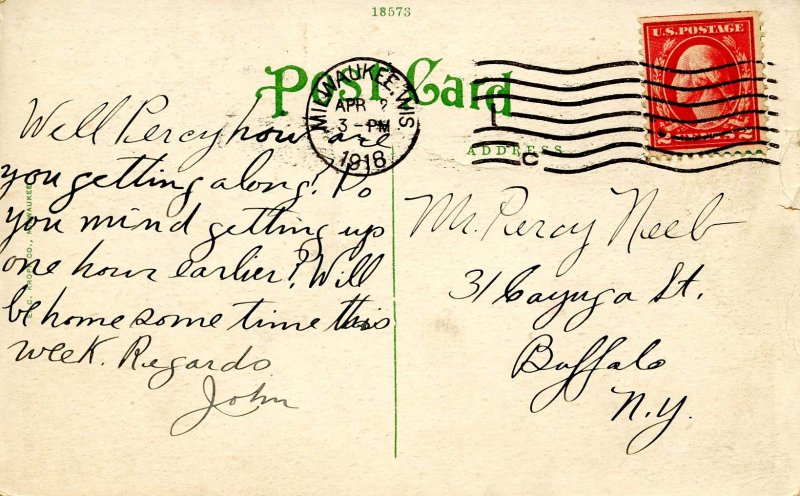 18573
Post Card
MILWAUKEE, WIS
APR 2
3-PM
1918
U.S. POSTAGE
2 CENTS 2
ADDRESS
Well Percy how are
you getting along? Do
you mind getting up
one hour earlier? Will
be home some time this
week. Regards
John
Mr. Percy Neeb
31 Cayuga St.
Buffalo
N.Y.
E. C. KROPP CO., MILWAUKEE